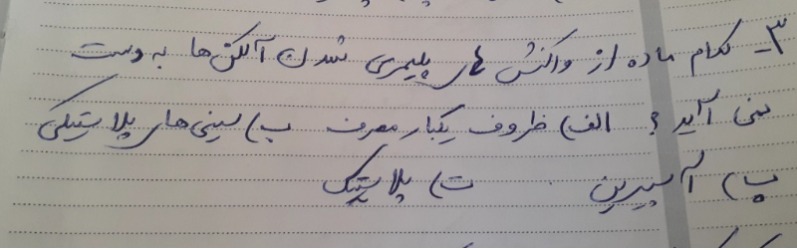 ۳- کدام ماده از واکنش های پلیمری شدن آلکن ها به دست
نمی آید؟ الف) ظروف یکبار مصرف ب) سینی های پلاستیکی
پ) آسپرین ت) پلاستیک